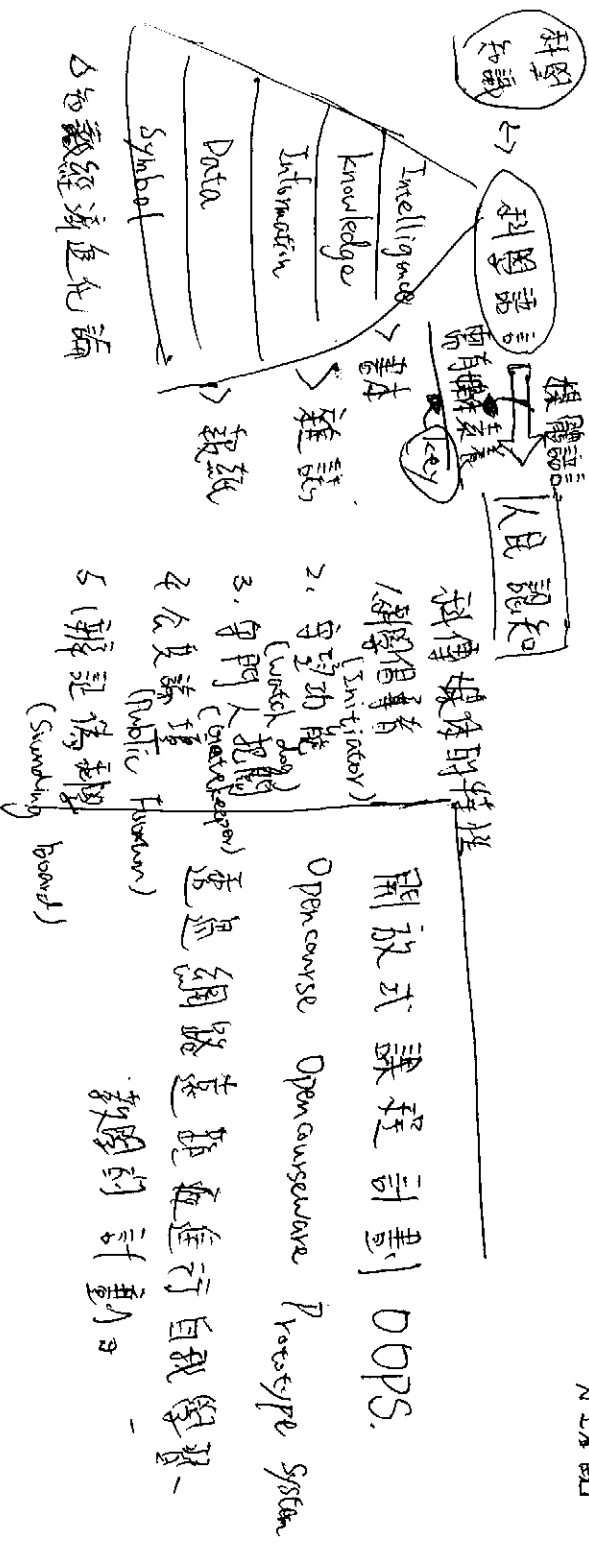 科學知識 → 科學語言
模擬語言
人民認知
需有媒體素養
key
Intelligence
knowledge > 書本
Information > 雜誌
Data > 報紙
Symbol
△知識經濟進化論
科傳媒體的特性
1.倡導者
(Initiator)
2.守望功能
(Watch dog)
3.守門人把關
(Gatekeeper)
4.公共論壇
(Public Forum)
5.
(Sounding board)
開放式課程計劃 OOPS.
Opencourse Opencourseware Prototype System
透過網路連線而進行自我學習
教學的計劃。